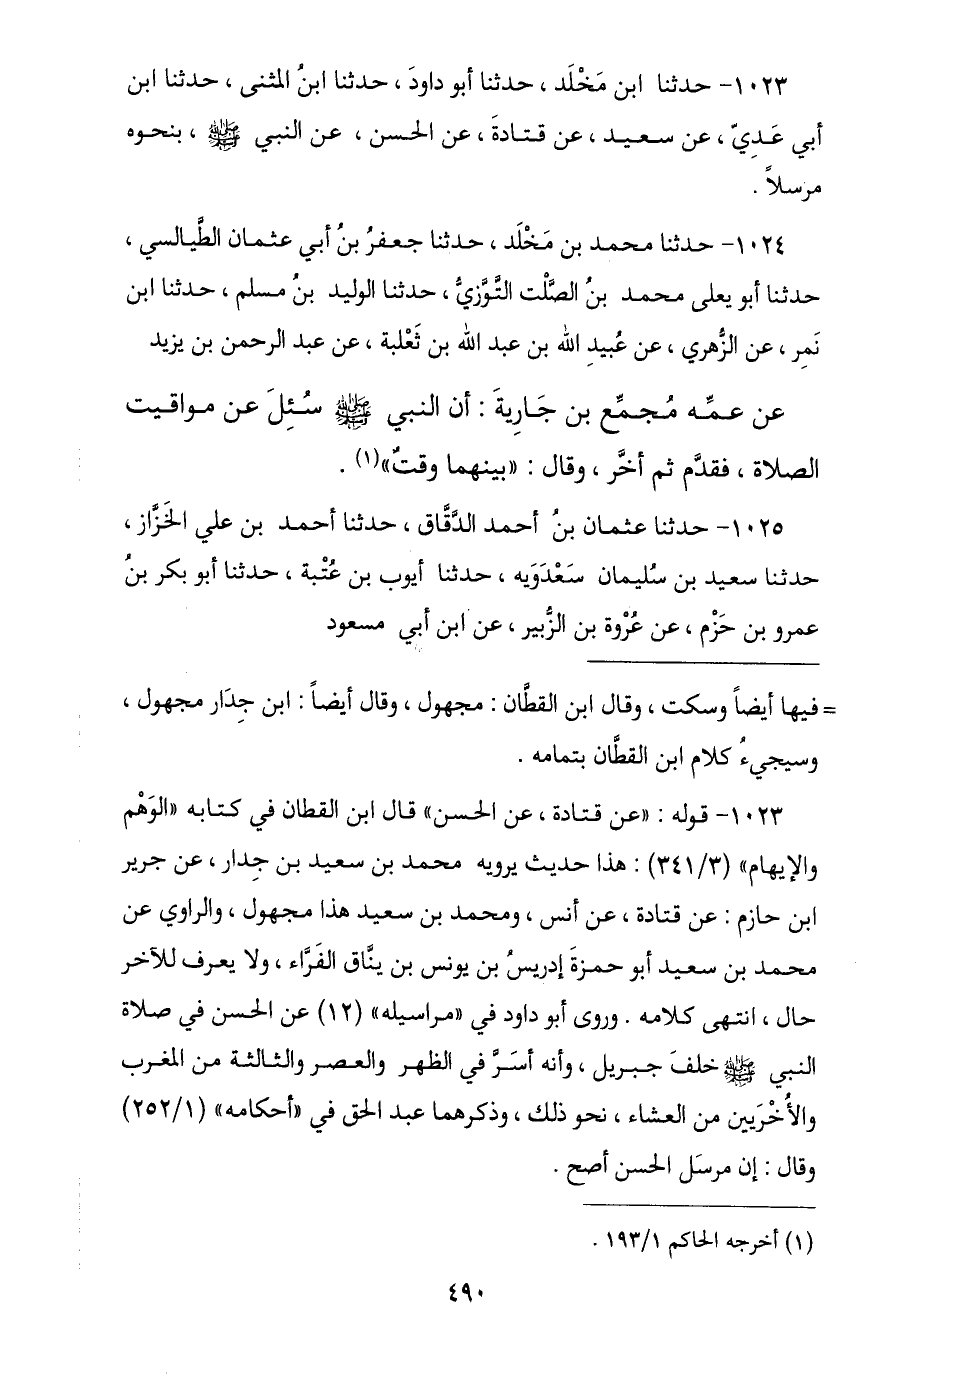 ١٠٢٣- حدثنا ابن مَخْلَد ، حدثنا أبو داودَ ، حدثنا ابنُ المثنى ، حدثنا ابن
أبي عَدِيّ ، عن سعيد ، عن قتادةَ ، عن الحسن ، عن النبي ﷺ ، بنحوه
مرسلاً .
١٠٢٤- حدثنا محمد بن مَخْلَد ، حدثنا جعفرُ بنُ أبي عثمان الطَّيالسي ،
حدثنا أبو يعلى محمد بنُ الصَّلْت التَّوَّزِيُّ ، حدثنا الوليد بنُ مسلم ، حدثنا ابن
نَمِر ، عن الزُّهري ، عن عُبيدِ الله بن عبد الله بن ثَعْلبة ، عن عبد الرحمن بن يزيد
عن عمِّه مُجمِّع بن جَارِيةَ : أن النبي ﷺ سُئِلَ عن مواقيت
الصلاة ، فقدَّم ثم أخَّر ، وقال : «بينهما وقتٌ»(١) .
١٠٢٥- حدثنا عثمان بنُ أحمد الدَّقَّاق ، حدثنا أحمد بن علي الخَزَّاز ،
حدثنا سعيد بن سُليمان سَعْدَوَيه ، حدثنا أيوب بن عُتْبة ، حدثنا أبو بكر بنُ
عمرو بن حَزْم ، عن عُرْوة بن الزُّبير ، عن ابن أبي مسعود
= فيها أيضاً وسكت ، وقال ابن القطَّان : مجهول ، وقال أيضاً : ابن جِدَار مجهول ،
وسيجيءُ كلام ابن القطَّان بتمامه .
١٠٢٣- قوله : «عن قتادة ، عن الحسن» قال ابن القطان في كتابه «الوَهْم
والإيهام» (٣٤١/٣) : هذا حديث يرويه محمد بن سعيد بن جِدار ، عن جرير
ابن حازم : عن قتادة ، عن أنس ، ومحمد بن سعيد هذا مجهول ، والراوي عن
محمد بن سعيد أبو حمزةَ إدريسُ بن يونس بن ينَّاق الفَرَّاء ، ولا يعرف للآخر
حال ، انتهى كلامه . وروى أبو داود في «مراسيله» (١٢) عن الحسن في صلاة
النبي ﷺ خلفَ جبريل ، وأنه أسَرَّ في الظهر والعصر والثالثة من المغرب
والأُخْرَيين من العشاء ، نحو ذلك ، وذكرهما عبد الحق في «أحكامه» (٢٥٢/١)
وقال : إن مرسَل الحسن أصح .
(١) أخرجه الحاكم ١٩٣/١ .
٤٩٠